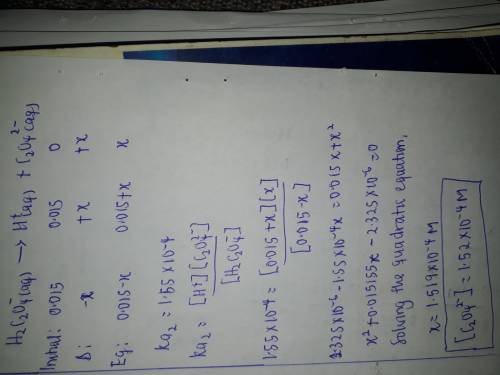 H₂C₂O₄⁻(aq) → H⁺(aq) + C₂O₄²⁻(aq)
Initial: 0.015 0.015 0
Δ: -x +x +x
Eq: 0.015-x 0.015+x x
Ka₂ = 1.55 x 10⁻⁴
Ka₂ = [H⁺][C₂O₄²⁻] / [H₂C₂O₄⁻]
1.55 x 10⁻⁴ = [0.015+x][x] / [0.015-x]
2.325 x 10⁻⁶ - 1.55 x 10⁻⁴x = 0.015x + x²
x² + 0.015155x - 2.325 x 10⁻⁶ = 0
Solving the quadratic equation,
x = 1.519 x 10⁻⁴ M
[C₂O₄²⁻] = 1.52 x 10⁻⁴ M